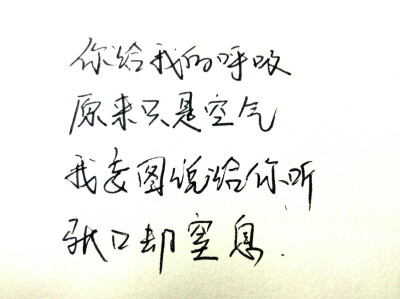 你给我的呼吸
原来只是空气
我妄图说给你听
张口却窒息.